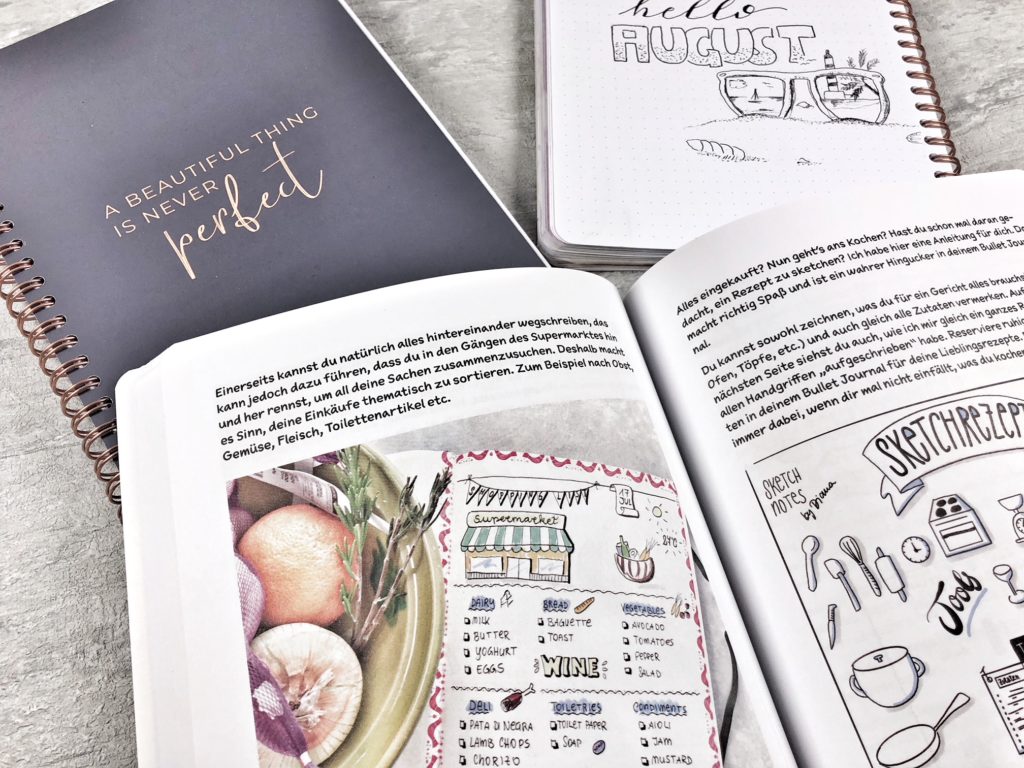 A BEAUTIFUL THING
IS NEVER
perfect
hello
AUGUST
Einerseits kannst du natürlich alles hintereinander wegschreiben, das
kann jedoch dazu führen, dass du in den Gängen des Supermarktes hin
und her rennst, um all deine Sachen zusammenzusuchen. Deshalb macht
es Sinn, deine Einkäufe thematisch zu sortieren. Zum Beispiel nach Obst,
Gemüse, Fleisch, Toilettenartikel etc.
17
JUL
Supermarket
24°C
DAIRY
MILK
BUTTER
YOGHURT
EGGS
BREAD
BAGUETTE
TOAST
WINE
VEGETABLES
AVOCADO
TOMATOES
PEPPER
SALAD
DELI
PATA DI NEGRA
LAMB CHOPS
CHORIZO
TOILETRIES
TOILET PAPER
SOAP
CONDIMENTS
AIOLI
JAM
MUSTARD
Alles eingekauft? Nun geht's ans Kochen? Hast du schon mal daran ge-
dacht, ein Rezept zu sketchen? Ich habe hier eine Anleitung für dich. Da
macht richtig Spaß und ist ein wahrer Hingucker in deinem Bullet Jour
nal.
Du kannst sowohl zeichnen, was du für ein Gericht alles brauchs
Ofen, Töpfe, etc.) und auch gleich alle Zutaten vermerken. Auf
nächsten Seite siehst du auch, wie ich mir gleich ein ganzes R
allen Handgriffen „aufgeschrieben" habe. Reserviere ruhig
ten in deinem Bullet Journal für deine Lieblingsrezepte.
immer dabei, wenn dir mal nicht einfällt, was du kochen
SKETCHREZEPT
SKETCH
NOTES
by Diana
Tools
Zutaten